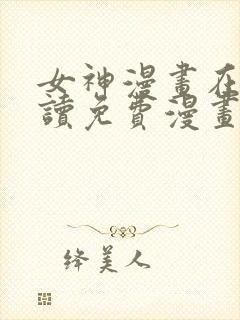 女神漫畫在
讀免費漫畫
绛美人